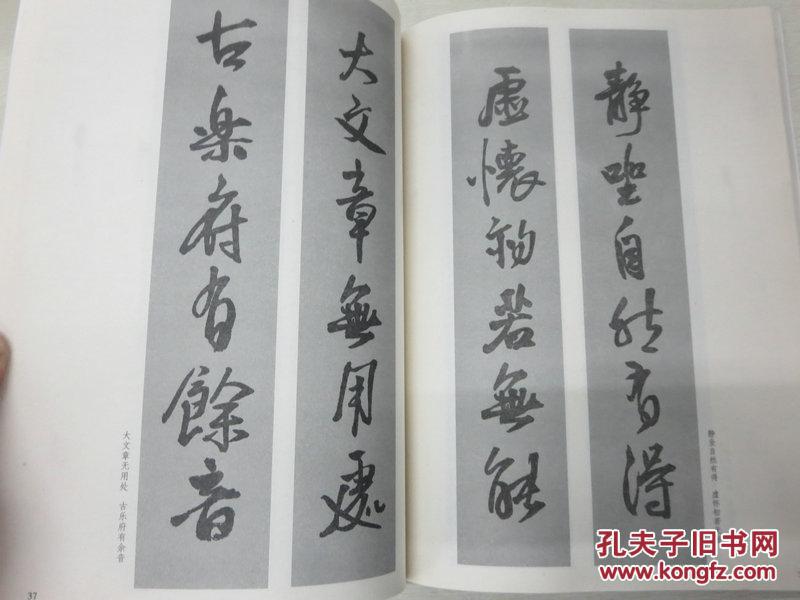 靜坐自然有得
虛懷初若無能
静坐自然有得 虚怀初若
大文章無用處
古楽府有餘音
大文章无用处 古乐府有余音
37
孔夫子旧书网
www.kongfz.com